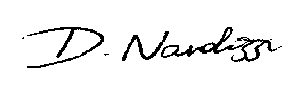 D. Nardizzi